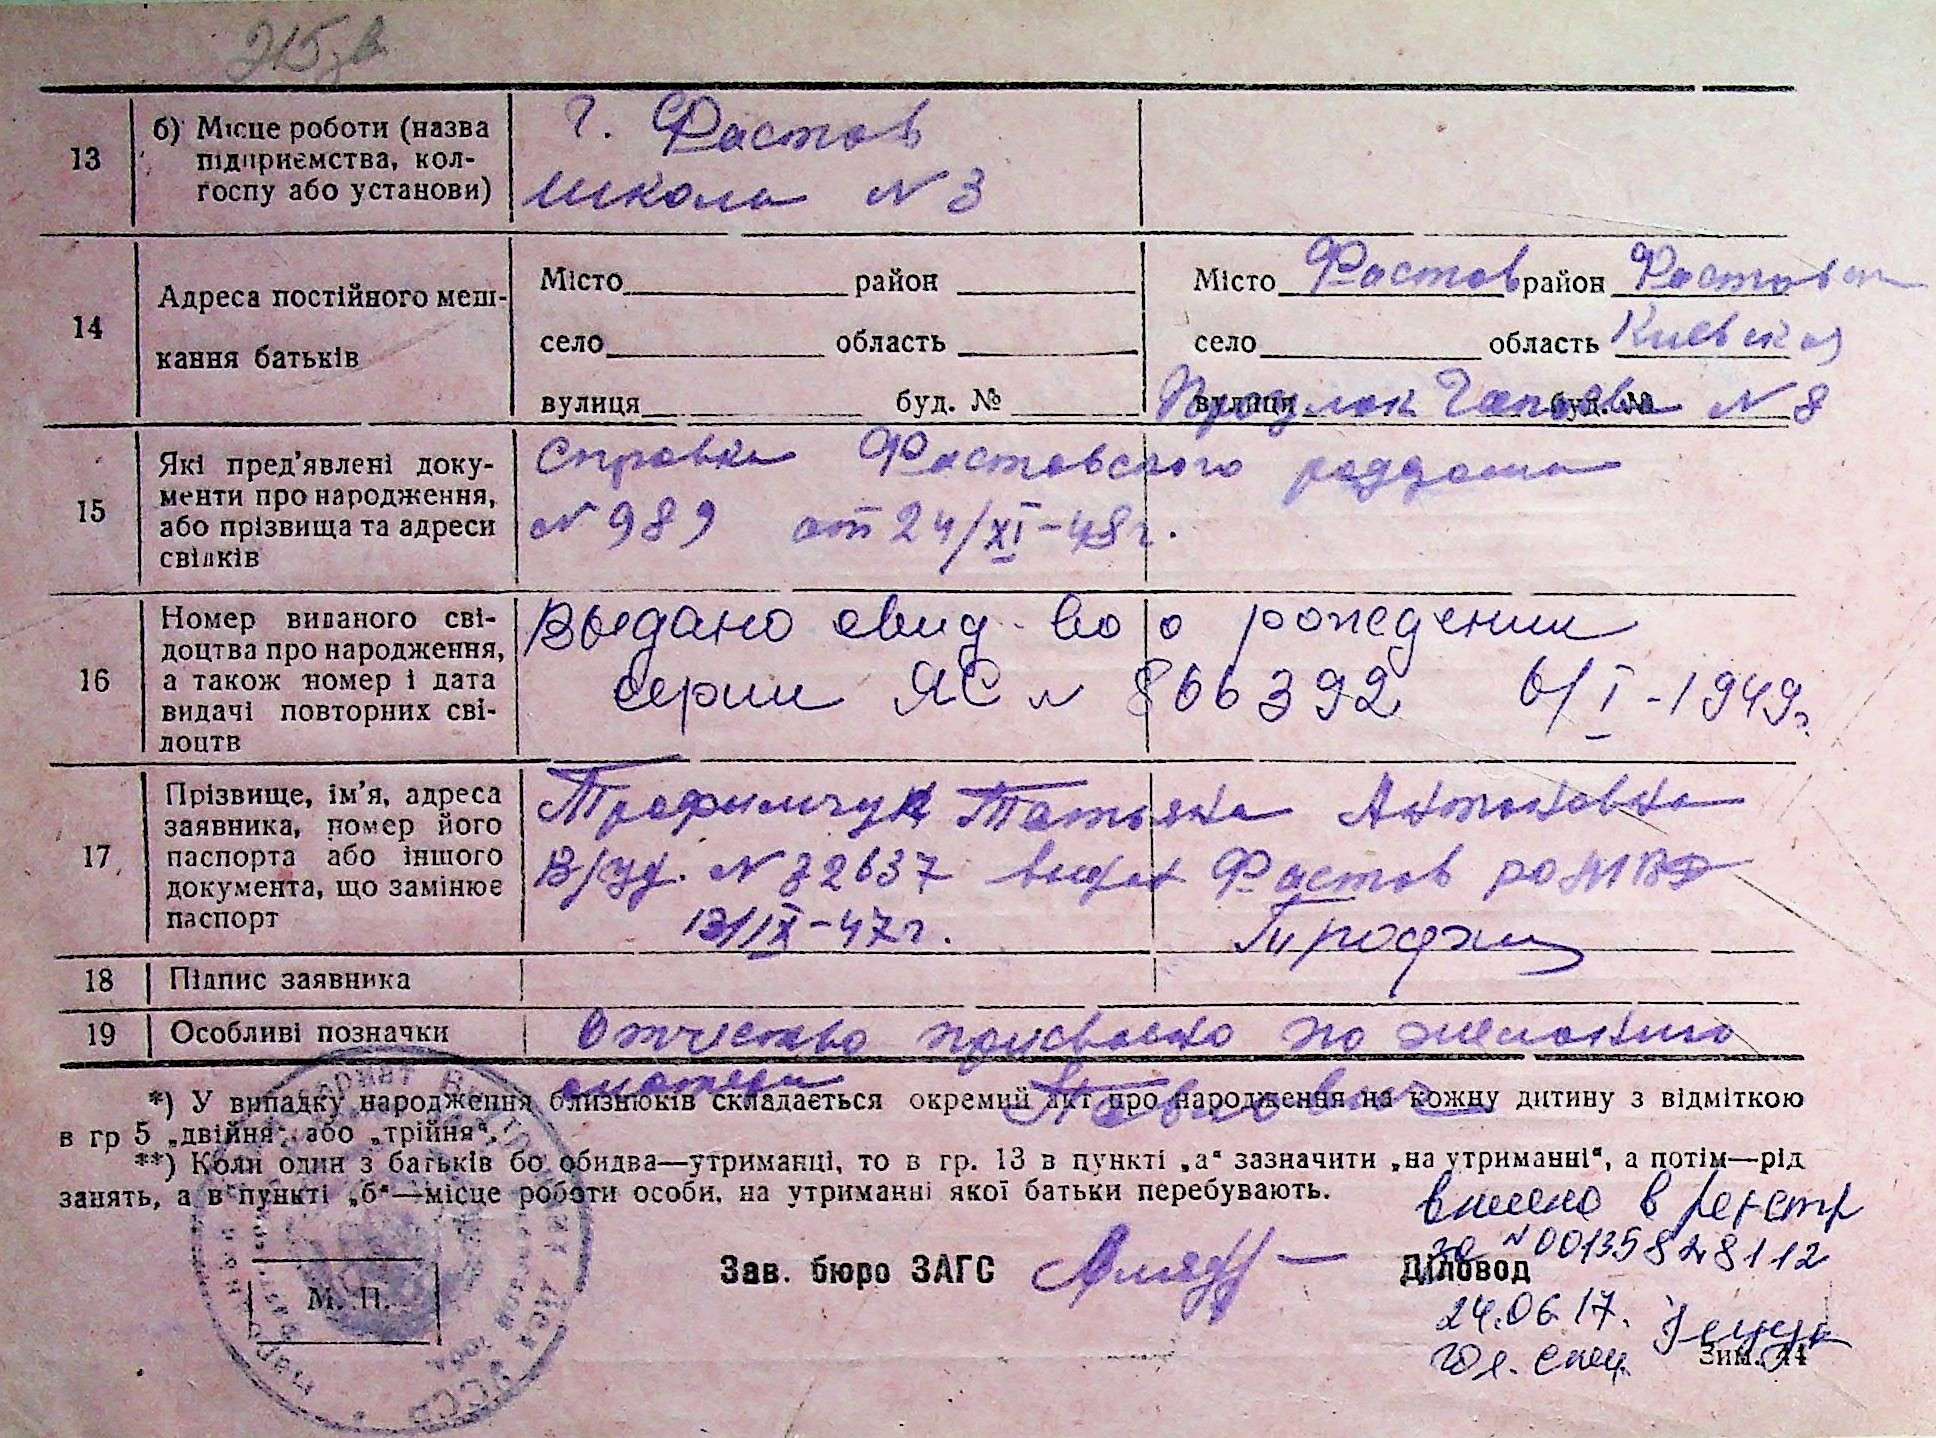 13
б) Місце роботи (назва
підприємства, кол-
госпу або установи)
г. Фастов
школа N 3
14
Адреса постійного меш-
кання батьків
Місто район
село область
вулиця буд. №
Місто Фастов район Фастовск
село область Киевская
вулиця буд. № Чапаева N 8
15
Які пред'явлені доку-
менти про народження,
або прізвища та адреси
свідків
Справка Фастовского роддома
N 989 от 24/XI-48г.
16
Номер виданого сві-
доцтва про народження,
а також номер і дата
видачі повторних сві-
доцтв
Выдано свид-во о рождении
серии ЯС N 866392 6/I-1949г.
17
Прізвище, ім'я, адреса
заявника, номер його
паспорта або іншого
документа, що замінює
паспорт
Трофимчук Татьяна Антоновна
В/уд. N 32637 выдан Фастов РО МВД
13/IX-47г.
18
Підпис заявника
19
Особливі позначки
Отчество присвоено по желанию
матери Павлович
*) У випадку народження близнюків складається окремий акт про народження на кожну дитину з відміткою
в гр 5 „двійня“, або „трійня“.
**) Коли один з батьків бо обидва—утриманці, то в гр. 13 в пункті „а“ зазначити „на утриманні“, а потім—рід
занять, а в пункті „б“—місце роботи особи, на утриманні якої батьки перебувають.
внесено в реєстр
за N 00135828112
Зав. бюро ЗАГС
Діловод
М. П.
24.06.17.
Гол. спец.